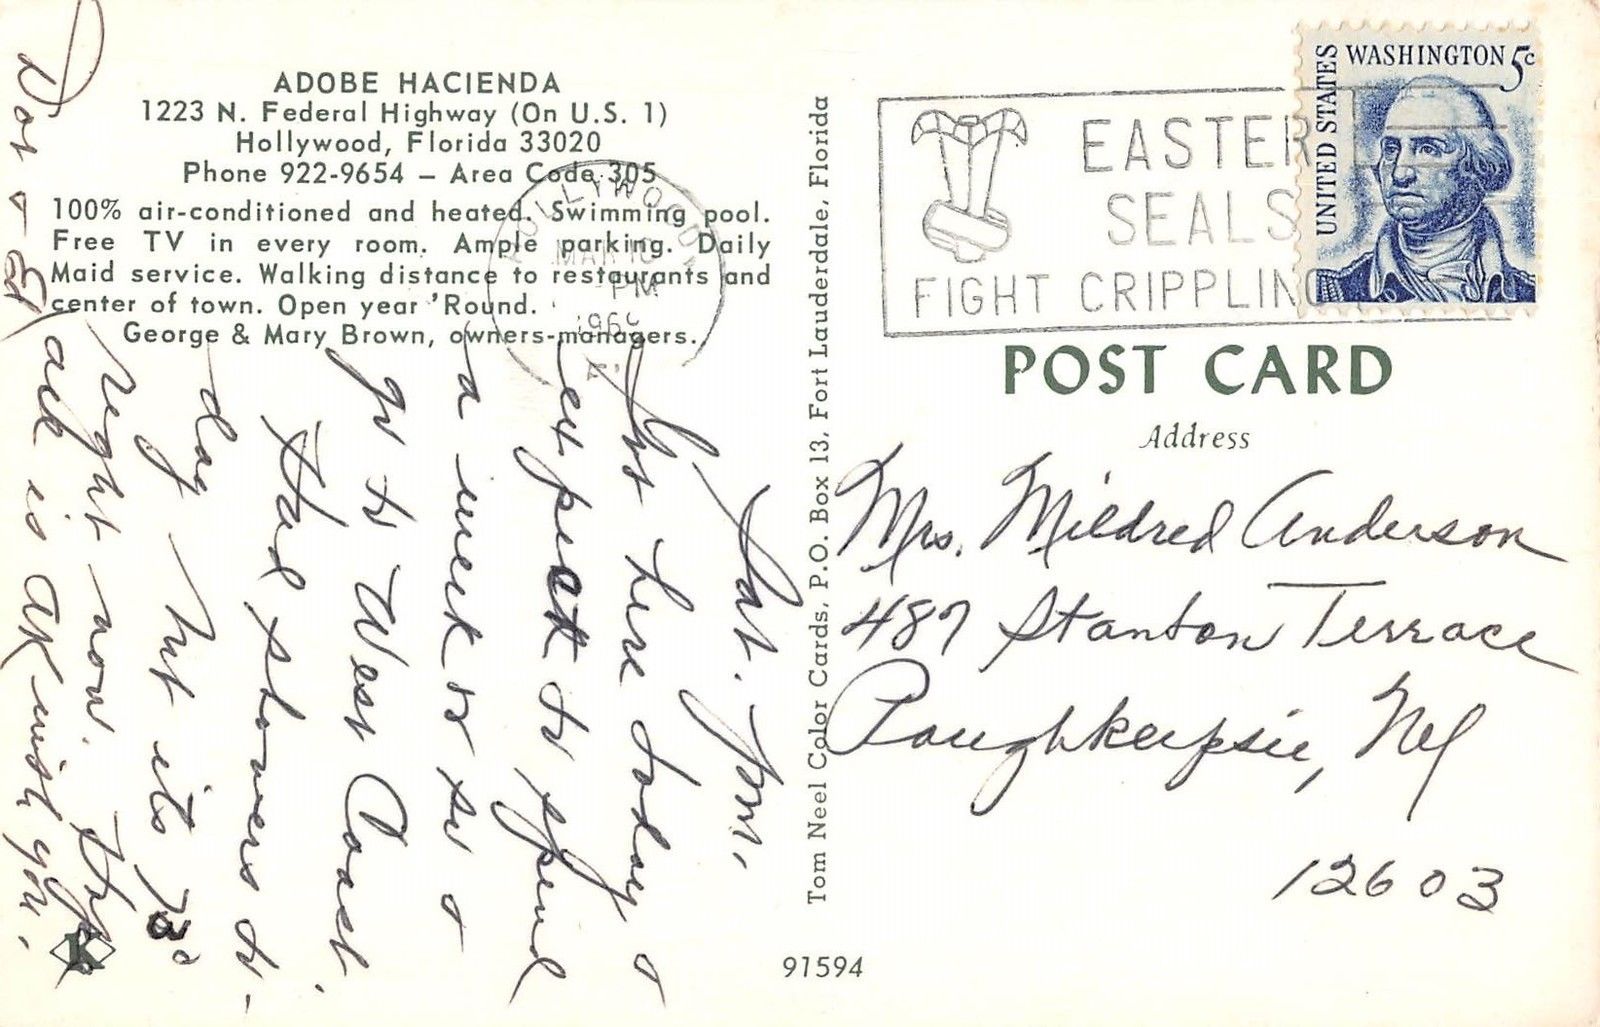 ADOBE HACIENDA
1223 N. Federal Highway (On U.S. 1)
Hollywood, Florida 33020
Phone 922-9654 – Area Code 305
100% air-conditioned and heated. Swimming pool.
Free TV in every room. Ample parking. Daily
Maid service. Walking distance to restaurants and
center of town. Open year 'Round.
George & Mary Brown, owners-managers.
HOLLYWOOD
MAR 10
PM
196
Sat. P.M.
Got here today &
expect to spend
a week or so &
go to West Coast.
Had showers to-
day but its 73°
right now. Hope
all is OK with you.
Dot & Ed
Tom Neel Color Cards, P.O. Box 13, Fort Lauderdale, Florida
EASTER
SEALS
FIGHT CRIPPLING
UNITED STATES
WASHINGTON 5c
POST CARD
Address
Mrs. Mildred Anderson
487 Stanton Terrace
Poughkeepsie, NY
12603
K
91594